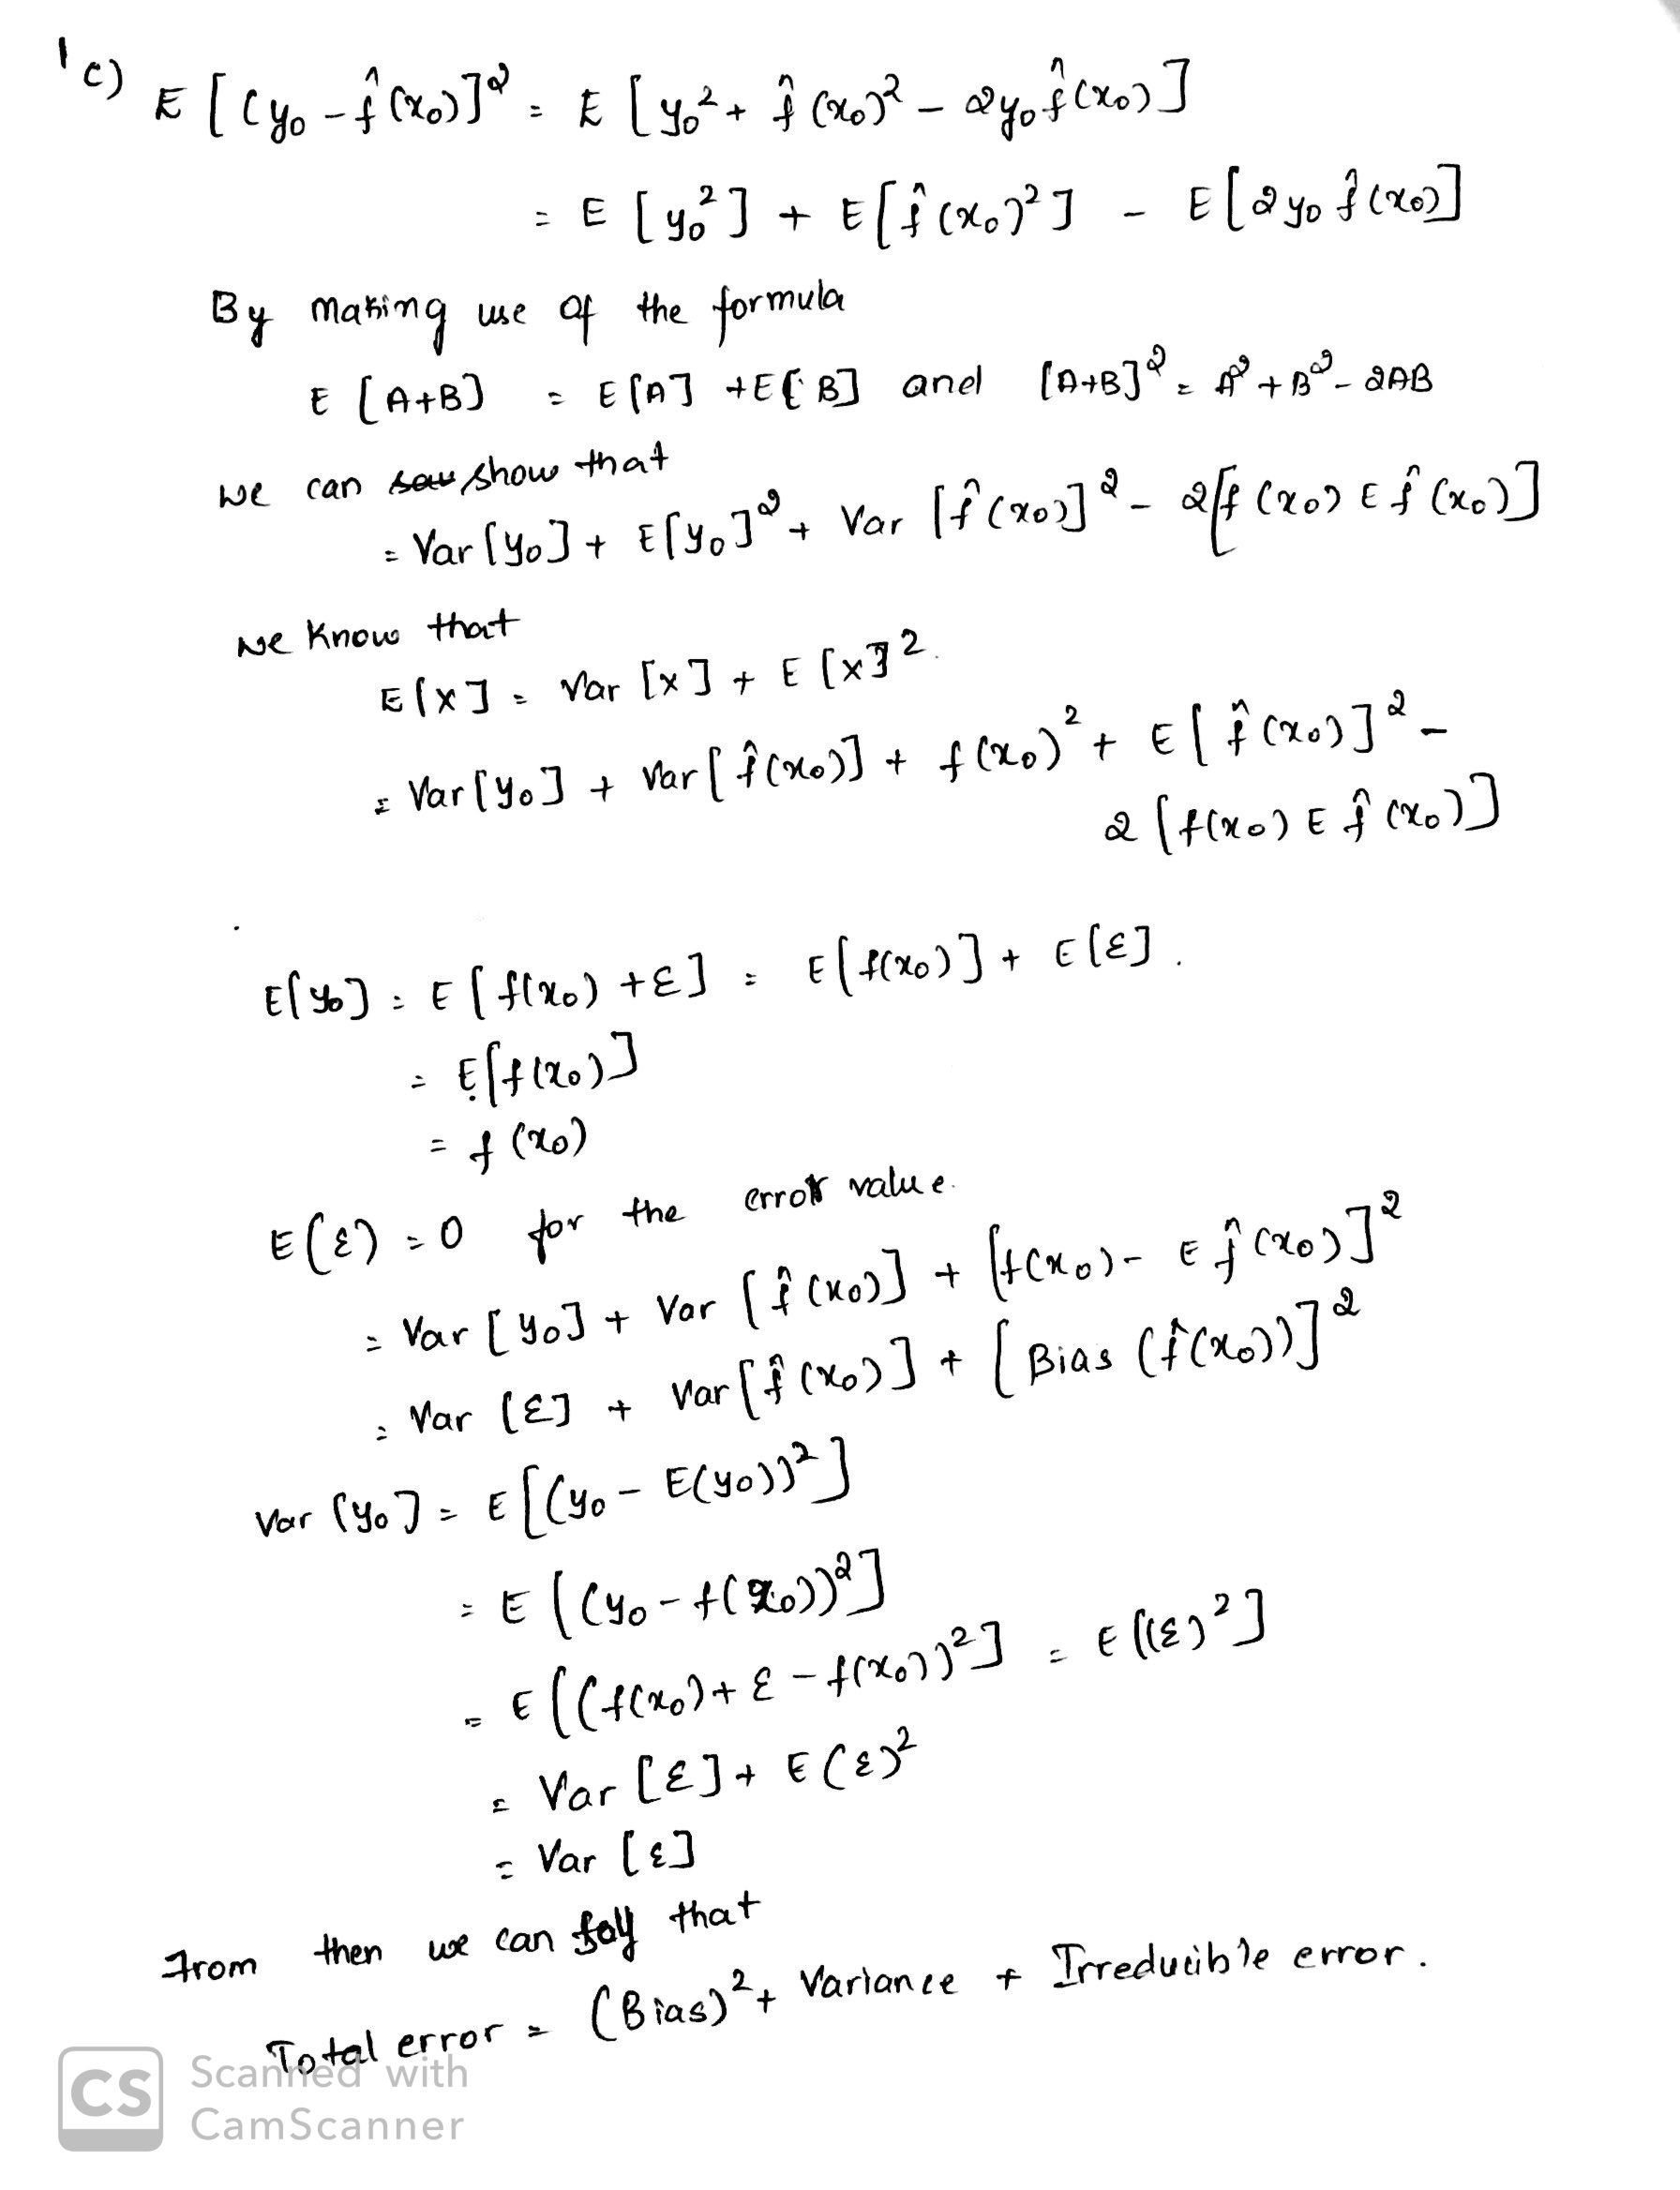 1c) E [(y₀ - f̂(x₀)]² = E [y₀² + f̂(x₀)² - 2y₀f̂(x₀)]
= E [y₀²] + E[f̂(x₀)²] - E[2y₀f̂(x₀)]
By making use of the formula
E [A+B] = E[A] + E[B] and [A+B]² = A² + B² - 2AB
we can show that
= Var[y₀] + E[y₀]² + Var [f̂(x₀)]² - 2[f(x₀) E f̂(x₀)]
we know that
E[x] = Var [x] + E[x]².
= Var[y₀] + Var[f̂(x₀)] + f(x₀)² + E[f̂(x₀)]² -
2[f(x₀) E f̂(x₀)]
E[y₀] = E[f(x₀) + ε] = E[f(x₀)] + E[ε].
= E[f(x₀)]
= f(x₀)
E(ε) = 0 for the error value.
= Var [y₀] + Var [f̂(x₀)] + [f(x₀) - E f̂(x₀)]²
= Var [ε] + Var[f̂(x₀)] + [Bias (f̂(x₀))]²
Var [y₀] = E[(y₀ - E(y₀))²]
= E[(y₀ - f(x₀))²]
= E[(f(x₀) + ε - f(x₀))²] = E[(ε)²]
= Var [ε] + E(ε)²
= Var [ε]
From then we can say that
Total error = (Bias)² + Variance + Irreducible error.
CS Scanned with
CamScanner